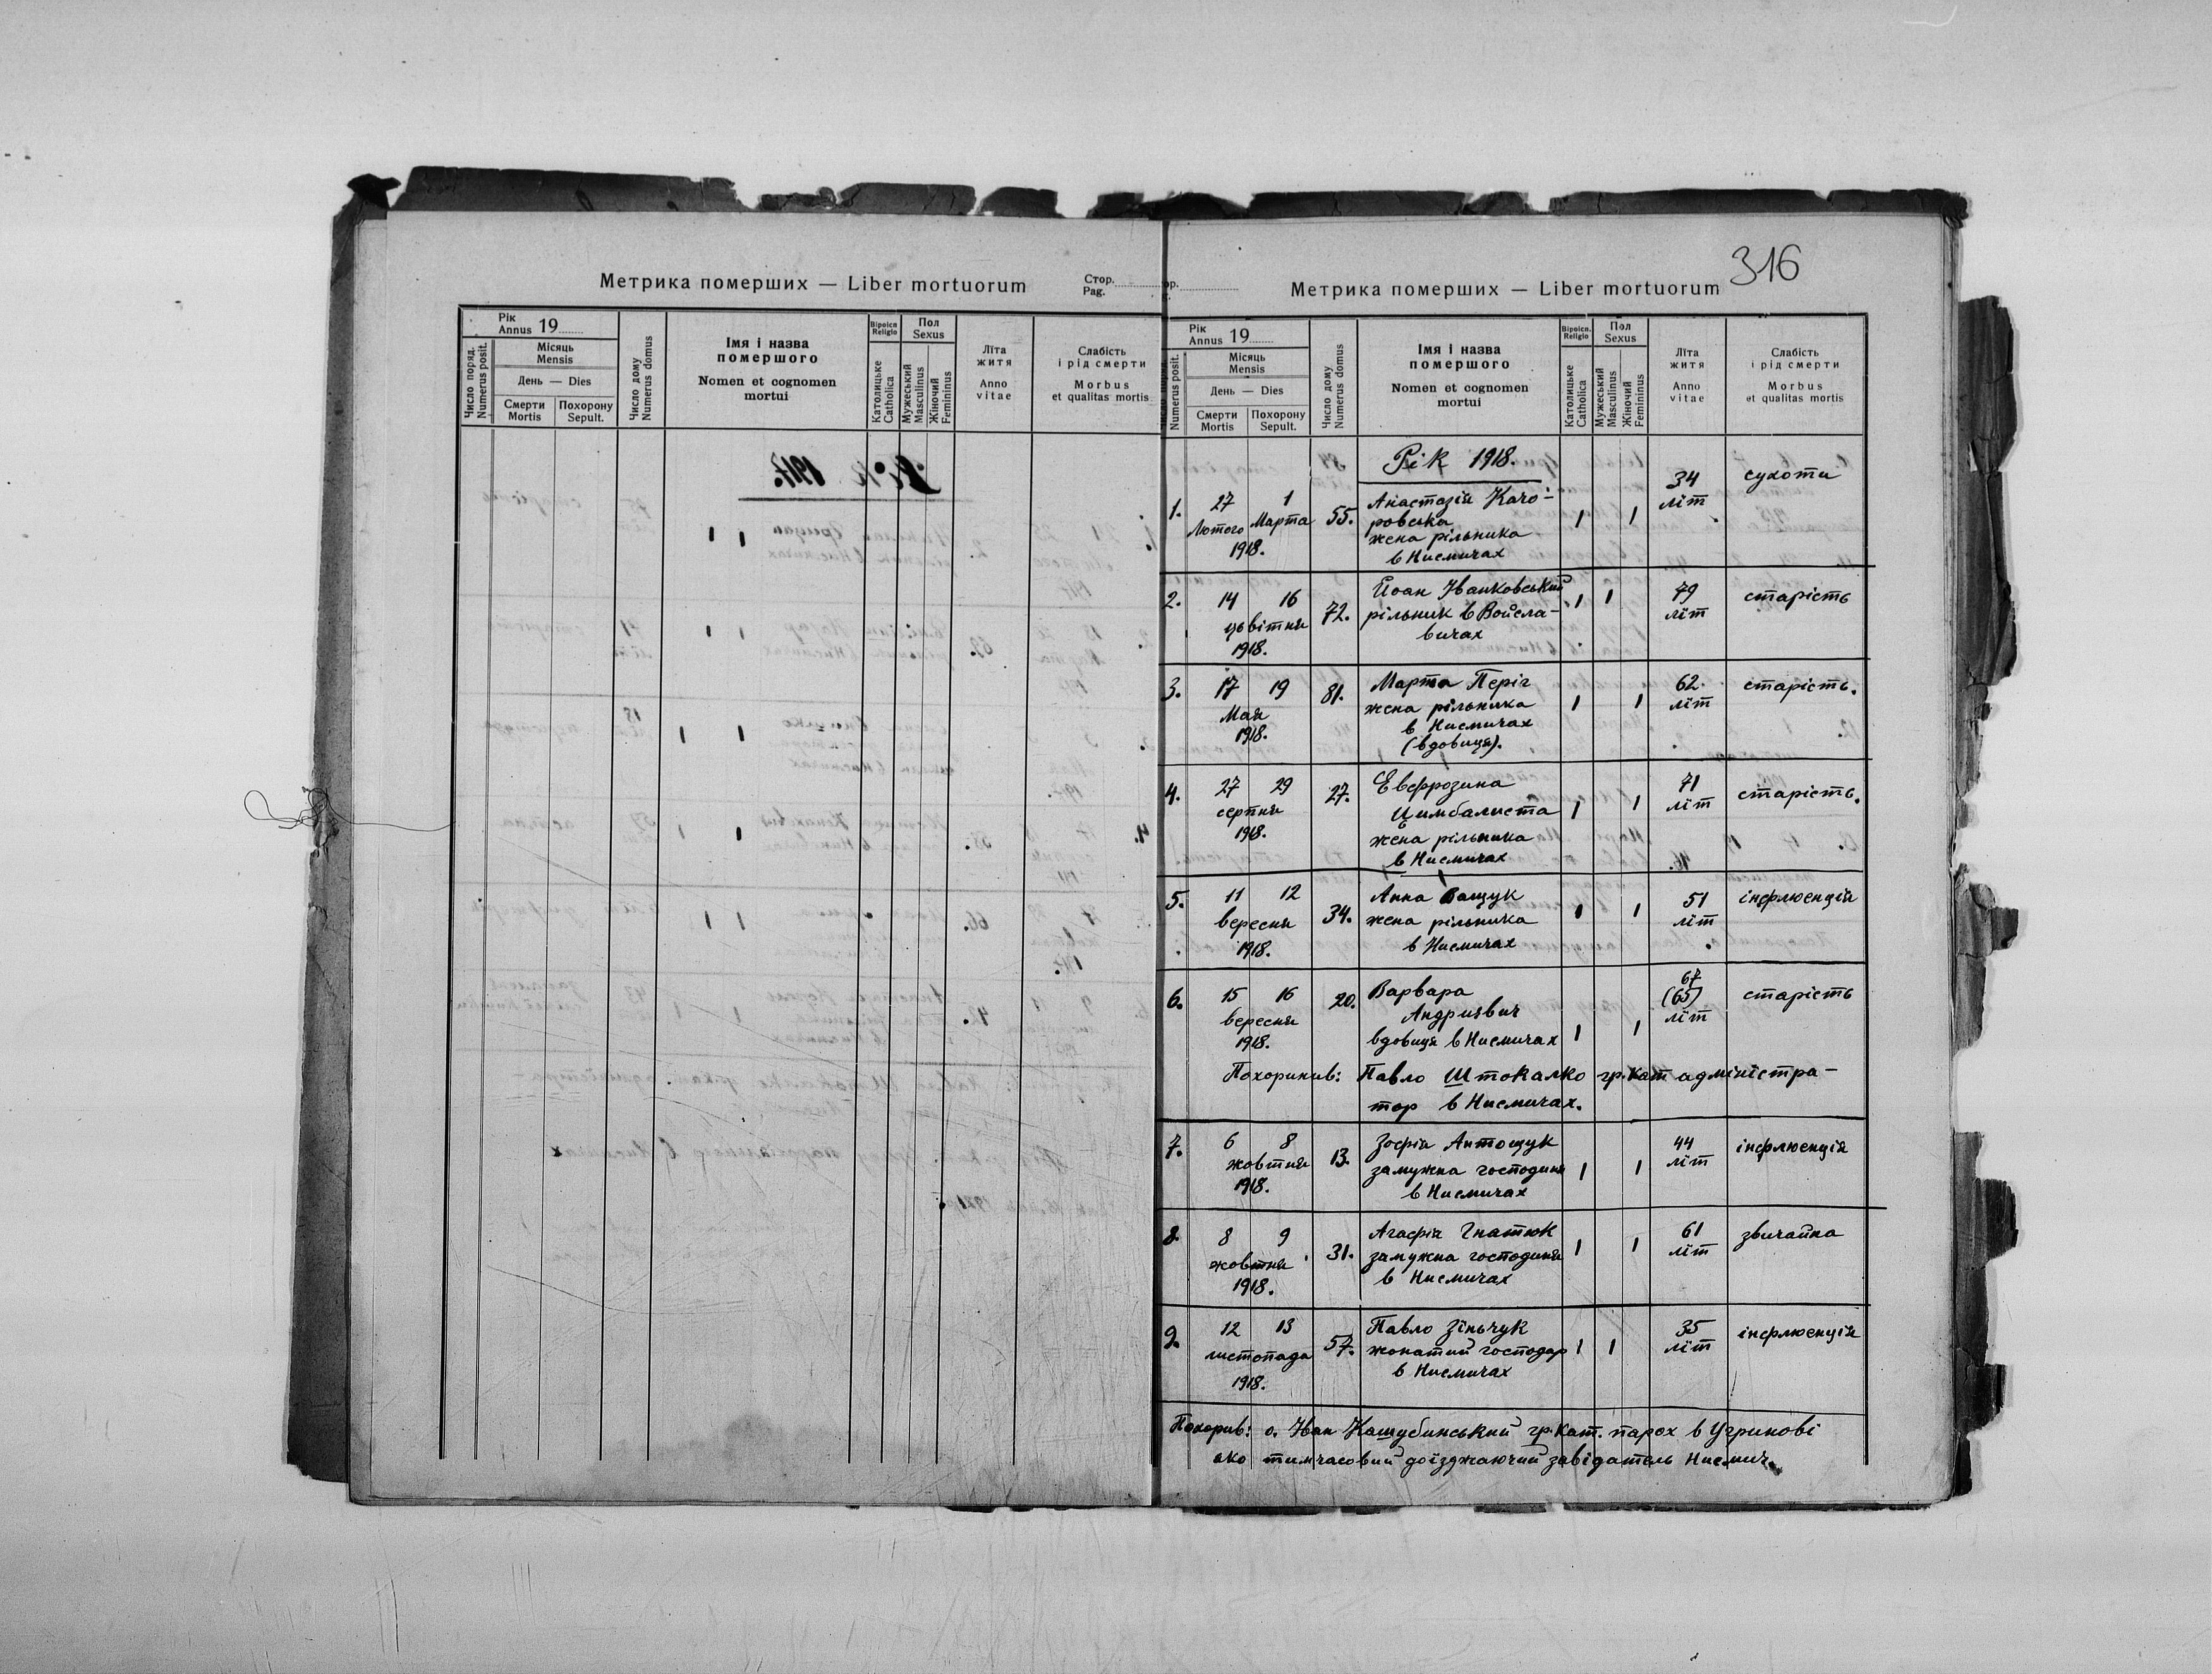 Метрика померших — Liber mortuorum
Стор.
Pag.
Рік
Annus 19
Місяць
Mensis
День — Dies
Смерти
Mortis
Похорону
Sepult.
Число поряд.
Numerus posit.
Число дому
Numerus domus
Імя і назва
помершого
Nomen et cognomen
mortui
Віроісп.
Religio
Католицьке
Catholica
Пол
Sexus
Мужеський
Masculinus
Жіночий
Femininus
Лїта
житя
Anno
vitae
Слабість
і рід смерти
Morbus
et qualitas mortis
316
Метрика померших — Liber mortuorum
Рік
Annus 19
Місяць
Mensis
День — Dies
Смерти
Mortis
Похорону
Sepult.
Numerus posit.
Число дому
Numerus domus
Імя і назва
помершого
Nomen et cognomen
mortui
Віроісп.
Religio
Католицьке
Catholica
Пол
Sexus
Мужеський
Masculinus
Жіночий
Femininus
Лїта
житя
Anno
vitae
Слабість
і рід смерти
Morbus
et qualitas mortis
Рік 1918.
1. 27 1 55. Анастазія
Лютого Марта ровська
1918. жена рільника
в Нисмичах
34 сухоти
літ
2. 14 16 72. Йоан Іванковський 79 старість
цьвітня рільник в Войсла- літ
1918. вичах
3. 17 19 81. Марта Періг 62 старість.
Мая жена рільника літ
1918. в Нисмичах
(вдовиця).
4. 27 29 27. Евфрозина 71 старість.
серпня Цимбалиста літ
1918. жена рільника
в Нисмичах
5. 11 12 34. Анна Ващук 51 інфлюенція
вересня жена рільника літ
1918. в Нисмичах
6. 15 16 20. Варвара 67 (65) старість
вересня Андриєвич літ
1918. вдовиця в Нисмичах
Похоронив: Павло Штокалко гр. кат адміністра-
тор в Нисмичах.
7. 6 8 13. Зофія Антощук 44 інфлюенція
жовтня замужна господиня літ
1918. в Нисмичах
8. 8 9 31. Агафія Гнатюк 61 звичайна
жовтня замужна господиня літ
1918. в Нисмичах
9. 12 13 57. Павло Зіньчук 35 інфлюенція
листопада жонатий господар літ
1918. в Нисмичах
Похорив: о. Іван Кашубинський гр. кат. парох в Угринові
яко тимчасовий доїзджаючий завідатель Нисмич.